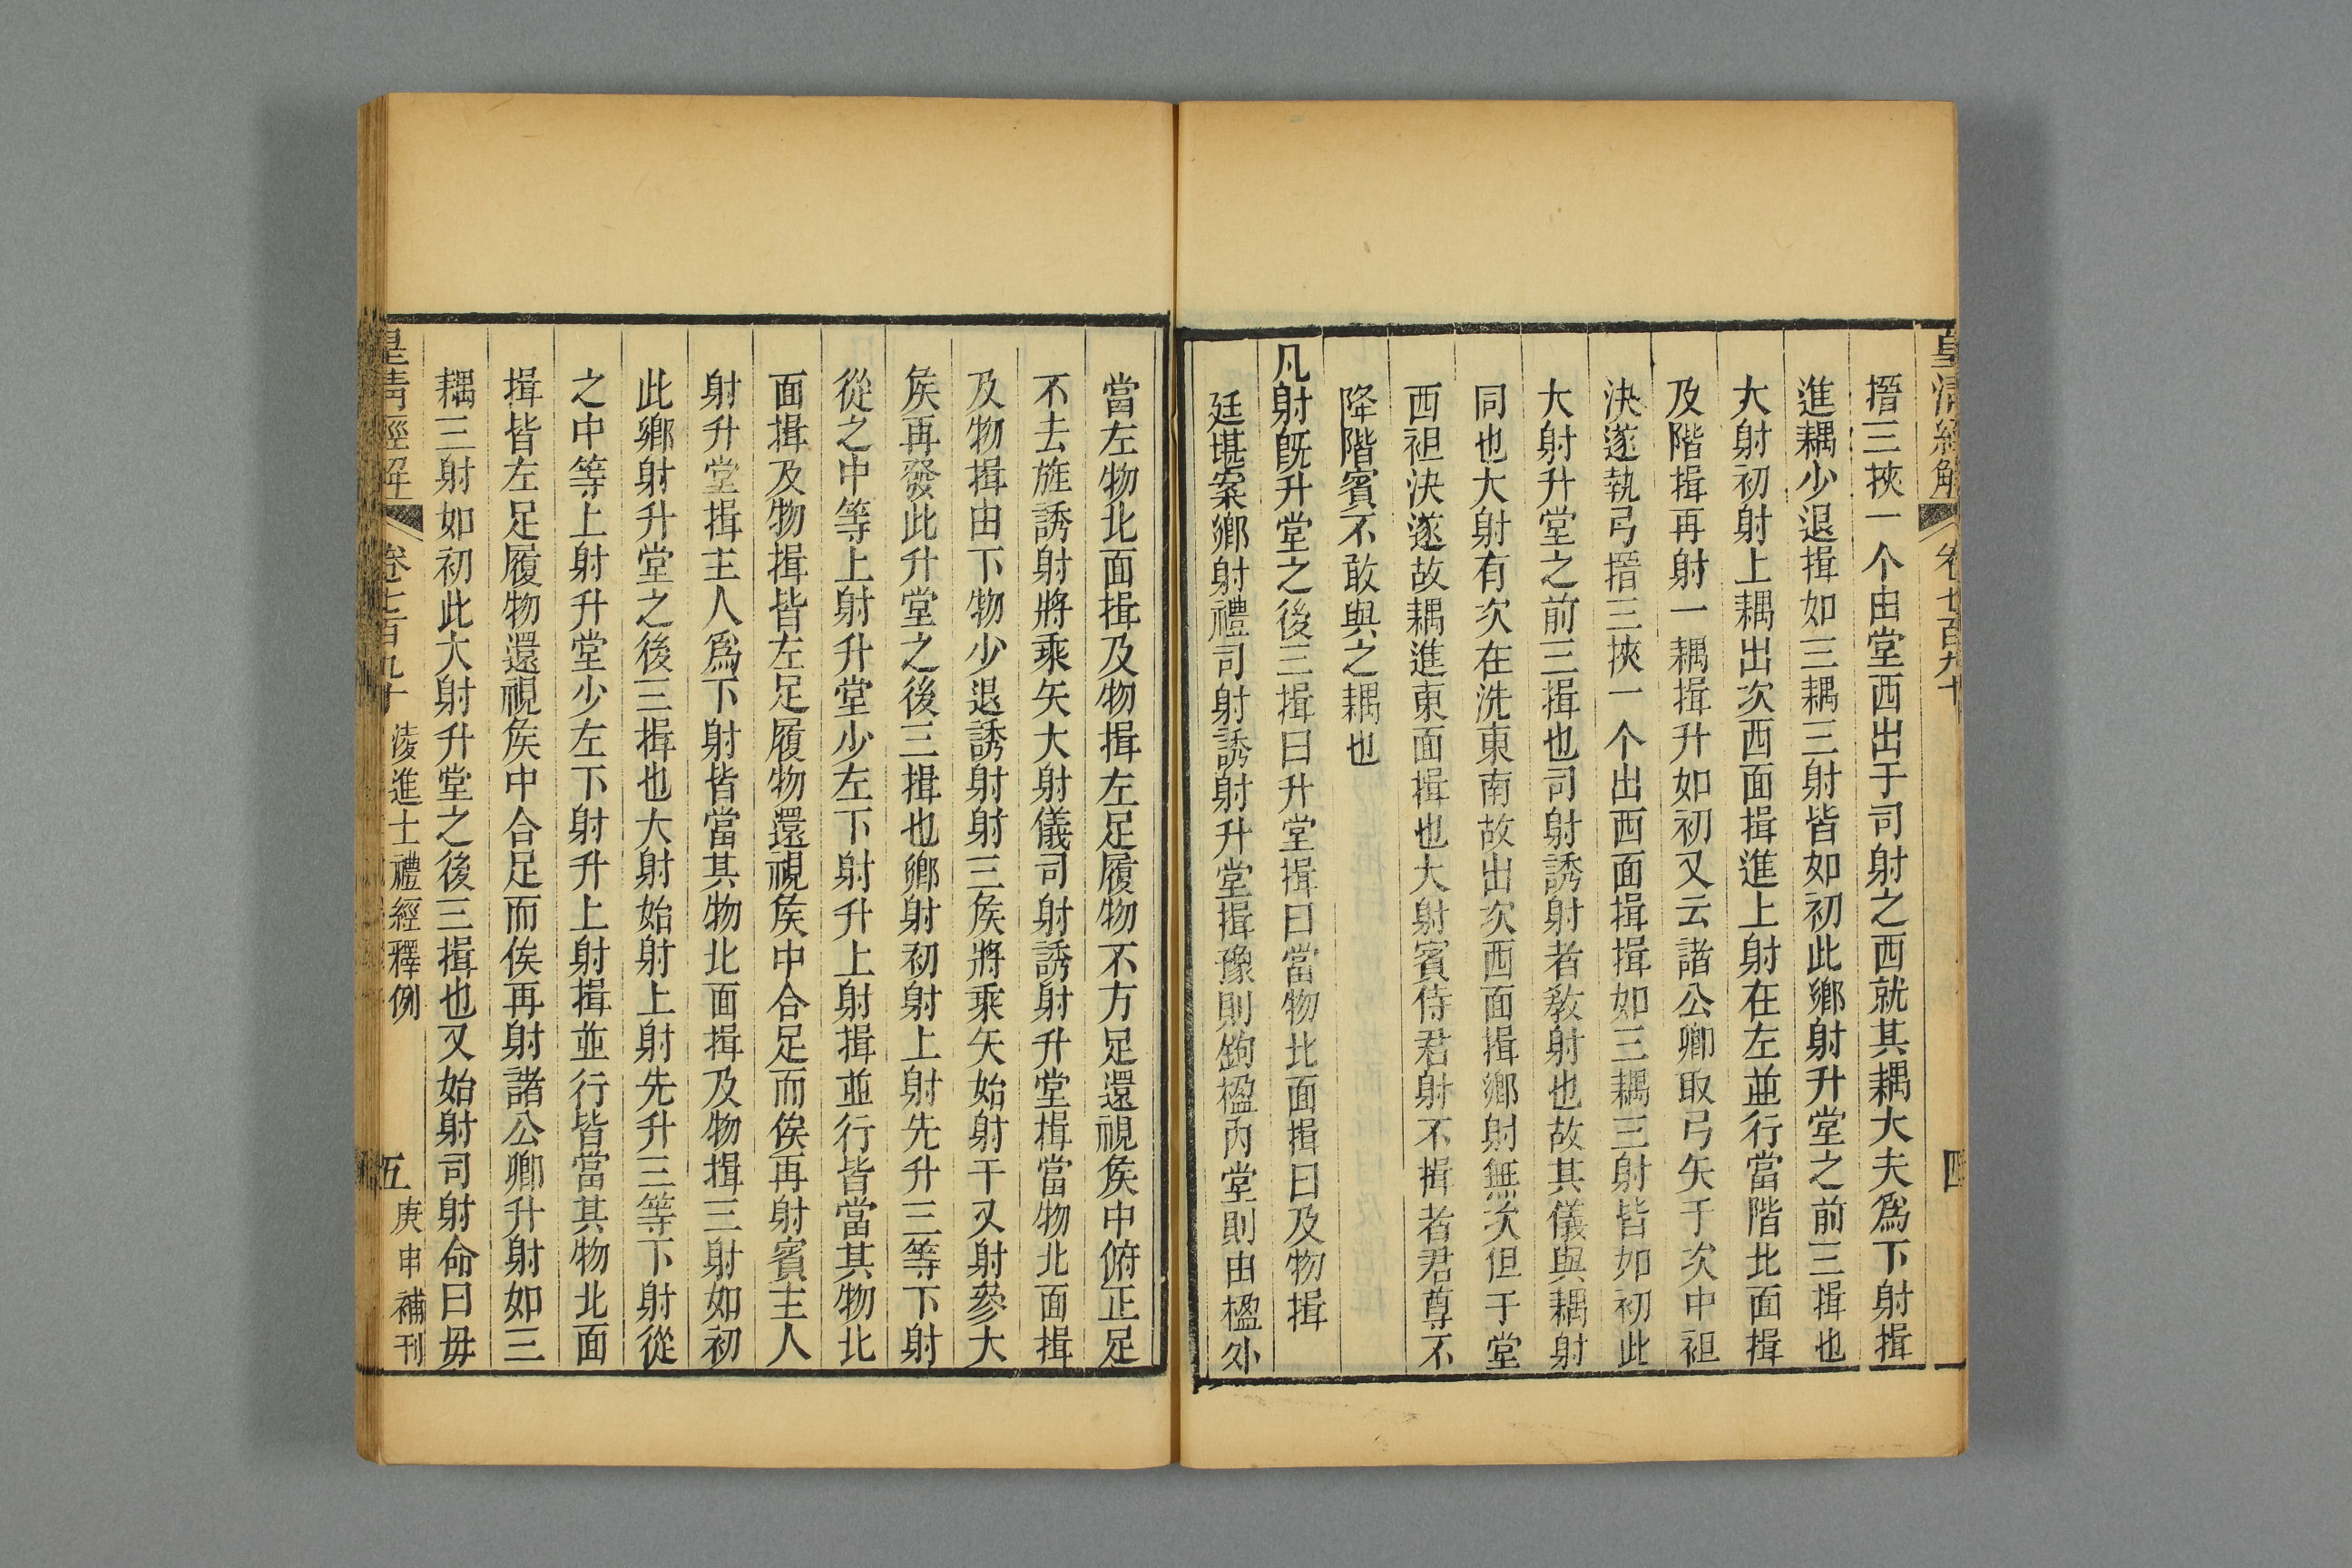 皇清經解 卷七百九十 四
搢三挾一个由堂西出于司射之西就其耦大夫爲下射揖
進耦少退揖如三耦三射皆如初此鄉射升堂之前三揖也
大射初射上耦出次西面揖進上射在左並行當階北面揖
及階揖再射一耦揖升如初又云諸公卿取弓矢于次中袒
決遂執弓搢三挾一个出西面揖揖如三耦三射皆如初此
大射升堂之前三揖也司射誘射者教射也故其儀與耦射
同也大射有次在洗東南故出次西面揖鄉射無次但于堂
西袒決遂故耦進東面揖也大射賓侍君射不揖者君尊不
降階賓不敢與之耦也
凡射既升堂之後三揖曰升堂揖曰當物北面揖曰及物揖
廷堪案鄉射禮司射誘射升堂揖豫則鉤楹內堂則由楹外
當左物北面揖及物揖左足履物不方足還視矦中俯正足
不去旌誘射將乘矢大射儀司射誘射升堂揖當物北面揖
及物揖由下物少退誘射射三矦將乘矢始射干又射參大
矦再發此升堂之後三揖也鄉射初射上射先升三等下射
從之中等上射升堂少左下射升上射揖並行皆當其物北
面揖及物揖皆左足履物還視矦中合足而俟再射賓主人
射升堂揖主人爲下射皆當其物北面揖及物揖三射如初
此鄉射升堂之後三揖也大射始射上射先升三等下射從
之中等上射升堂少左下射升上射揖並行皆當其物北面
揖皆左足履物還視矦中合足而俟再射諸公卿升射如三
耦三射如初此大射升堂之後三揖也又始射司射命曰毋
皇清經解 卷七百九十 淩進士禮經釋例 五 庚申補刊